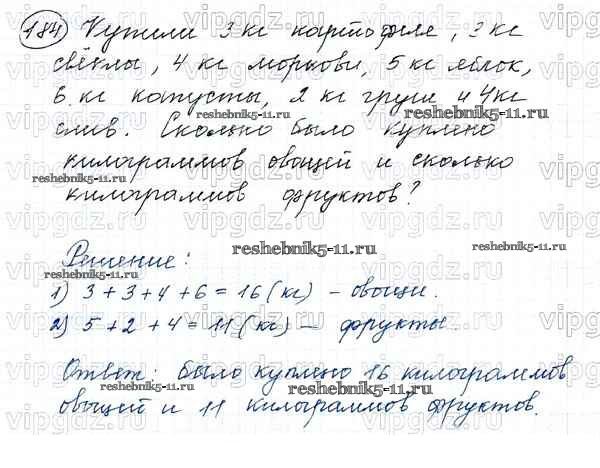 184 Купили 3 кг картофеля, 3 кг
свёклы, 4 кг моркови, 5 кг яблок,
6 кг капусты, 2 кг груш и 4 кг
слив. Сколько было куплено
килограммов овощей и сколько
килограммов фруктов?
Решение:
1) 3 + 3 + 4 + 6 = 16 (кг) – овощи.
2) 5 + 2 + 4 = 11 (кг) – фрукты.
Ответ: было куплено 16 килограммов
овощей и 11 килограммов фруктов.
reshebnik5-11.ru
reshebnik5-11.ru
reshebnik5-11.ru
reshebnik5-11.ru
reshebnik5-11.ru
reshebnik5-11.ru
vipgdz.ru